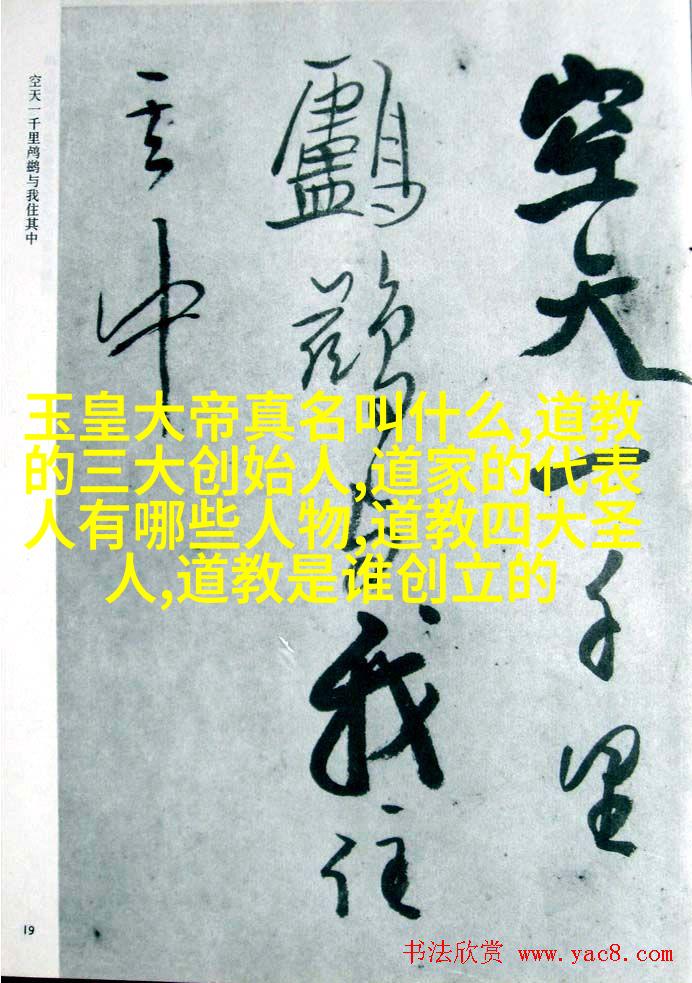 空天一千里
鸕鷀與我住
其中
空天一千里鸬鹚与我住其中
玉皇大帝真名叫什么,道教
的三大创始人,道家的代表
人有哪些人物,道教四大圣
人,道教是谁创立的
19
书法欣赏 www.yac8.com